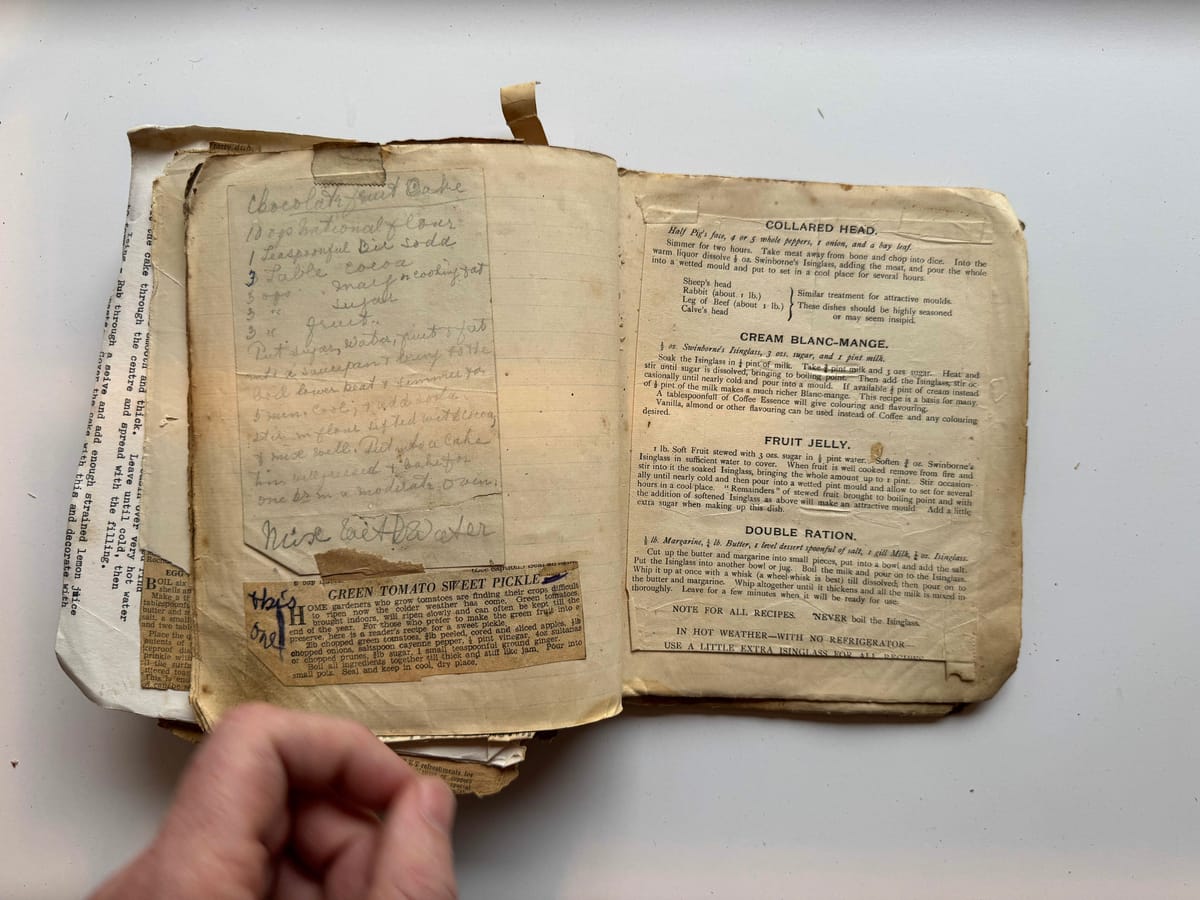 Chocolate fruit Cake
10 ozs national flour
1 Teaspoonful Bic Soda
3 Table cocoa
3 ozs. marg or cooking fat
3 " sugar
3 " fruit.
Put sugar, water, fruit & fat
into a saucepan & bring to the
boil lower heat & simmer for
5 min. Cool, add soda
stir in flour sifted with cocoa,
& mix well. Put into a Cake
tin well greased & bake for
one hour in a moderate Oven.
Mix with Water
this
one
GREEN TOMATO SWEET PICKLE
HOME gardeners who grow tomatoes are finding their crops difficult
to ripen now the colder weather has come. Green tomatoes,
brought indoors, will ripen slowly and can often be kept till the
end of the year. For those who prefer to make the green fruit into a
preserve, here is a reader's recipe for a sweet pickle.
2lb chopped green tomatoes, ½lb peeled, cored and sliced apples, ½lb
chopped onions, saltspoon cayenne pepper, ½ pint vinegar, 4oz sultanas
or chopped prunes, ½lb sugar, 1 small teaspoonful ground ginger.
Boil all ingredients together till thick and stiff like jam. Pour into
small pots. Seal and keep in cool, dry place.
COLLARED HEAD.
Half Pig's face, 4 or 5 whole peppers, 1 onion, and a bay leaf.
Simmer for two hours. Take meat away from bone and chop into dice. Into the
warm liquor dissolve ½ oz. Swinborne's Isinglass, adding the meat, and pour the whole
into a wetted mould and put to set in a cool place for several hours.
Sheep's head
Rabbit (about 1 lb.)
Leg of Beef (about 1 lb.)
Calve's head
Similar treatment for attractive moulds.
These dishes should be highly seasoned
or may seem insipid.
CREAM BLANC-MANGE.
½ oz. Swinborne's Isinglass, 3 ozs. sugar, and 1 pint milk.
Soak the Isinglass in ¼ pint of milk. Take ¾ pint milk and 3 ozs. sugar. Heat and
stir until sugar is dissolved, bringing to boiling point. Then add the Isinglass, stir oc-
casionally until nearly cold and pour into a mould. If available ¼ pint of cream instead
of ¼ pint of the milk makes a much richer Blanc-mange. This recipe is a basis for many.
A tablespoonfull of Coffee Essence will give colouring and flavouring.
Vanilla, almond or other flavouring can be used instead of Coffee and any colouring
desired.
FRUIT JELLY.
1 lb. Soft Fruit stewed with 3 ozs. sugar in ½ pint water. Soften ¾ oz. Swinborne's
Isinglass in sufficient water to cover. When fruit is well cooked remove from fire and
stir into it the soaked Isinglass, bringing the whole amount up to 1 pint. Stir occasion-
ally until nearly cold and then pour into a wetted pint mould and allow to set for several
hours in a cool place. "Remainders" of stewed fruit brought to boiling point and with
the addition of softened Isinglass as above will make an attractive mould. Add a little
extra sugar when making up this dish.
DOUBLE RATION.
½ lb. Margarine, ½ lb. Butter, 1 level dessert spoonful of salt, 1 gill Milk, ¼ oz. Isinglass.
Cut up the butter and margarine into small pieces, put into a bowl and add the salt.
Put the Isinglass into another bowl or jug. Boil the milk and pour on to the Isinglass.
Whip it up at once with a whisk (a wheel-whisk is best) till dissolved; then pour on to
the butter and margarine. Whip altogether until it thickens and all the milk is mixed in
thoroughly. Leave for a few minutes when it will be ready for use.
NOTE FOR ALL RECIPES. NEVER boil the Isinglass.
IN HOT WEATHER—WITH NO REFRIGERATOR—
USE A LITTLE EXTRA ISINGLASS FOR ALL RECIPES
smooth and thick. Leave until cold, then
the cake through the centre and spread with the filling.
over very hot water
Rub through a seive and add enough strained lemon juice
Cover the cake with this and decorate with
EGG
BOIL six
shells an